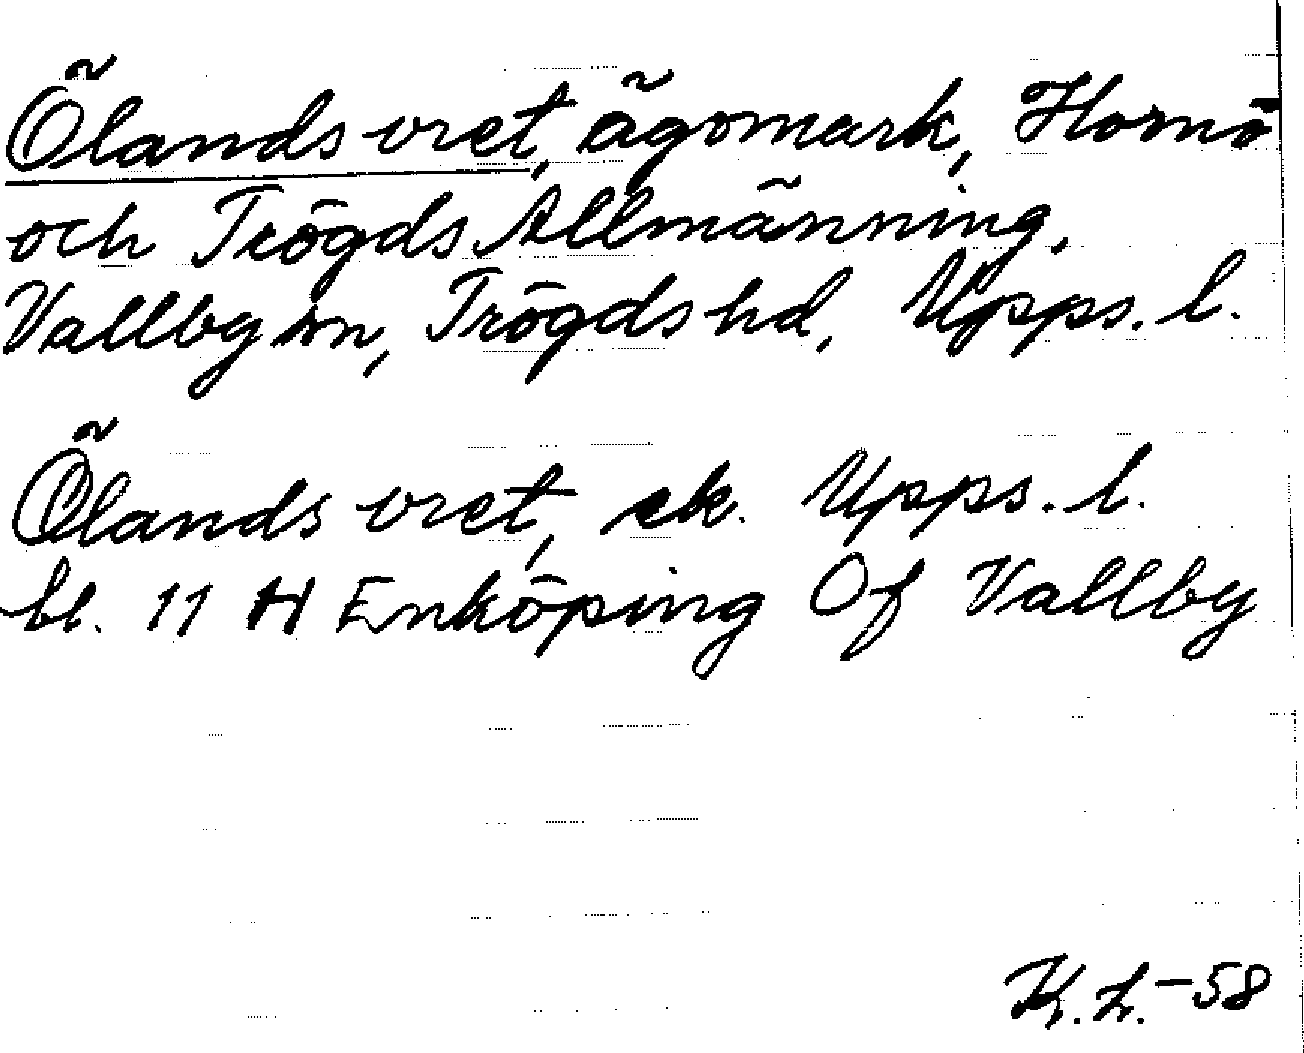 Ölandsvret, ägomark, Hornö
och Trögds Allmänning,
Vallby sn, Trögds hd, Upps. l.
Ölandsvret, ek. Upps. l.
bl. 11 H Enköping Of Vallby
K.L.-58